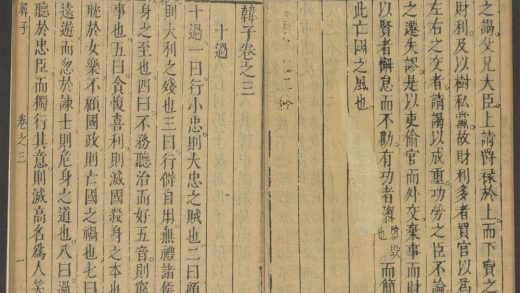 之謁父兄大臣上請爵祿於上而下賣之
財利及以樹私黨故財利多者買官以爲
左右之交者請謁以成重功勞之臣不論
之遷失謬是以吏偷官而外交棄事而財
以賢者懈怠而不勸有功者隳而簡
此亡國之風也
韓子卷之三
十過
十過一曰行小忠則大忠之賊也二曰顧
則大利之殘也三曰行僻自用無禮諸侯
身之至也四曰不務聽治而好五音則窮
事也五曰貪愎喜利則滅國殺身之本也
耽於女樂不顧國政則亡國之禍也七曰
遠遊而忽於諫士則危身之道也八曰過
聽於忠臣而獨行其意則滅高名爲人笑
韓子
卷之三
一